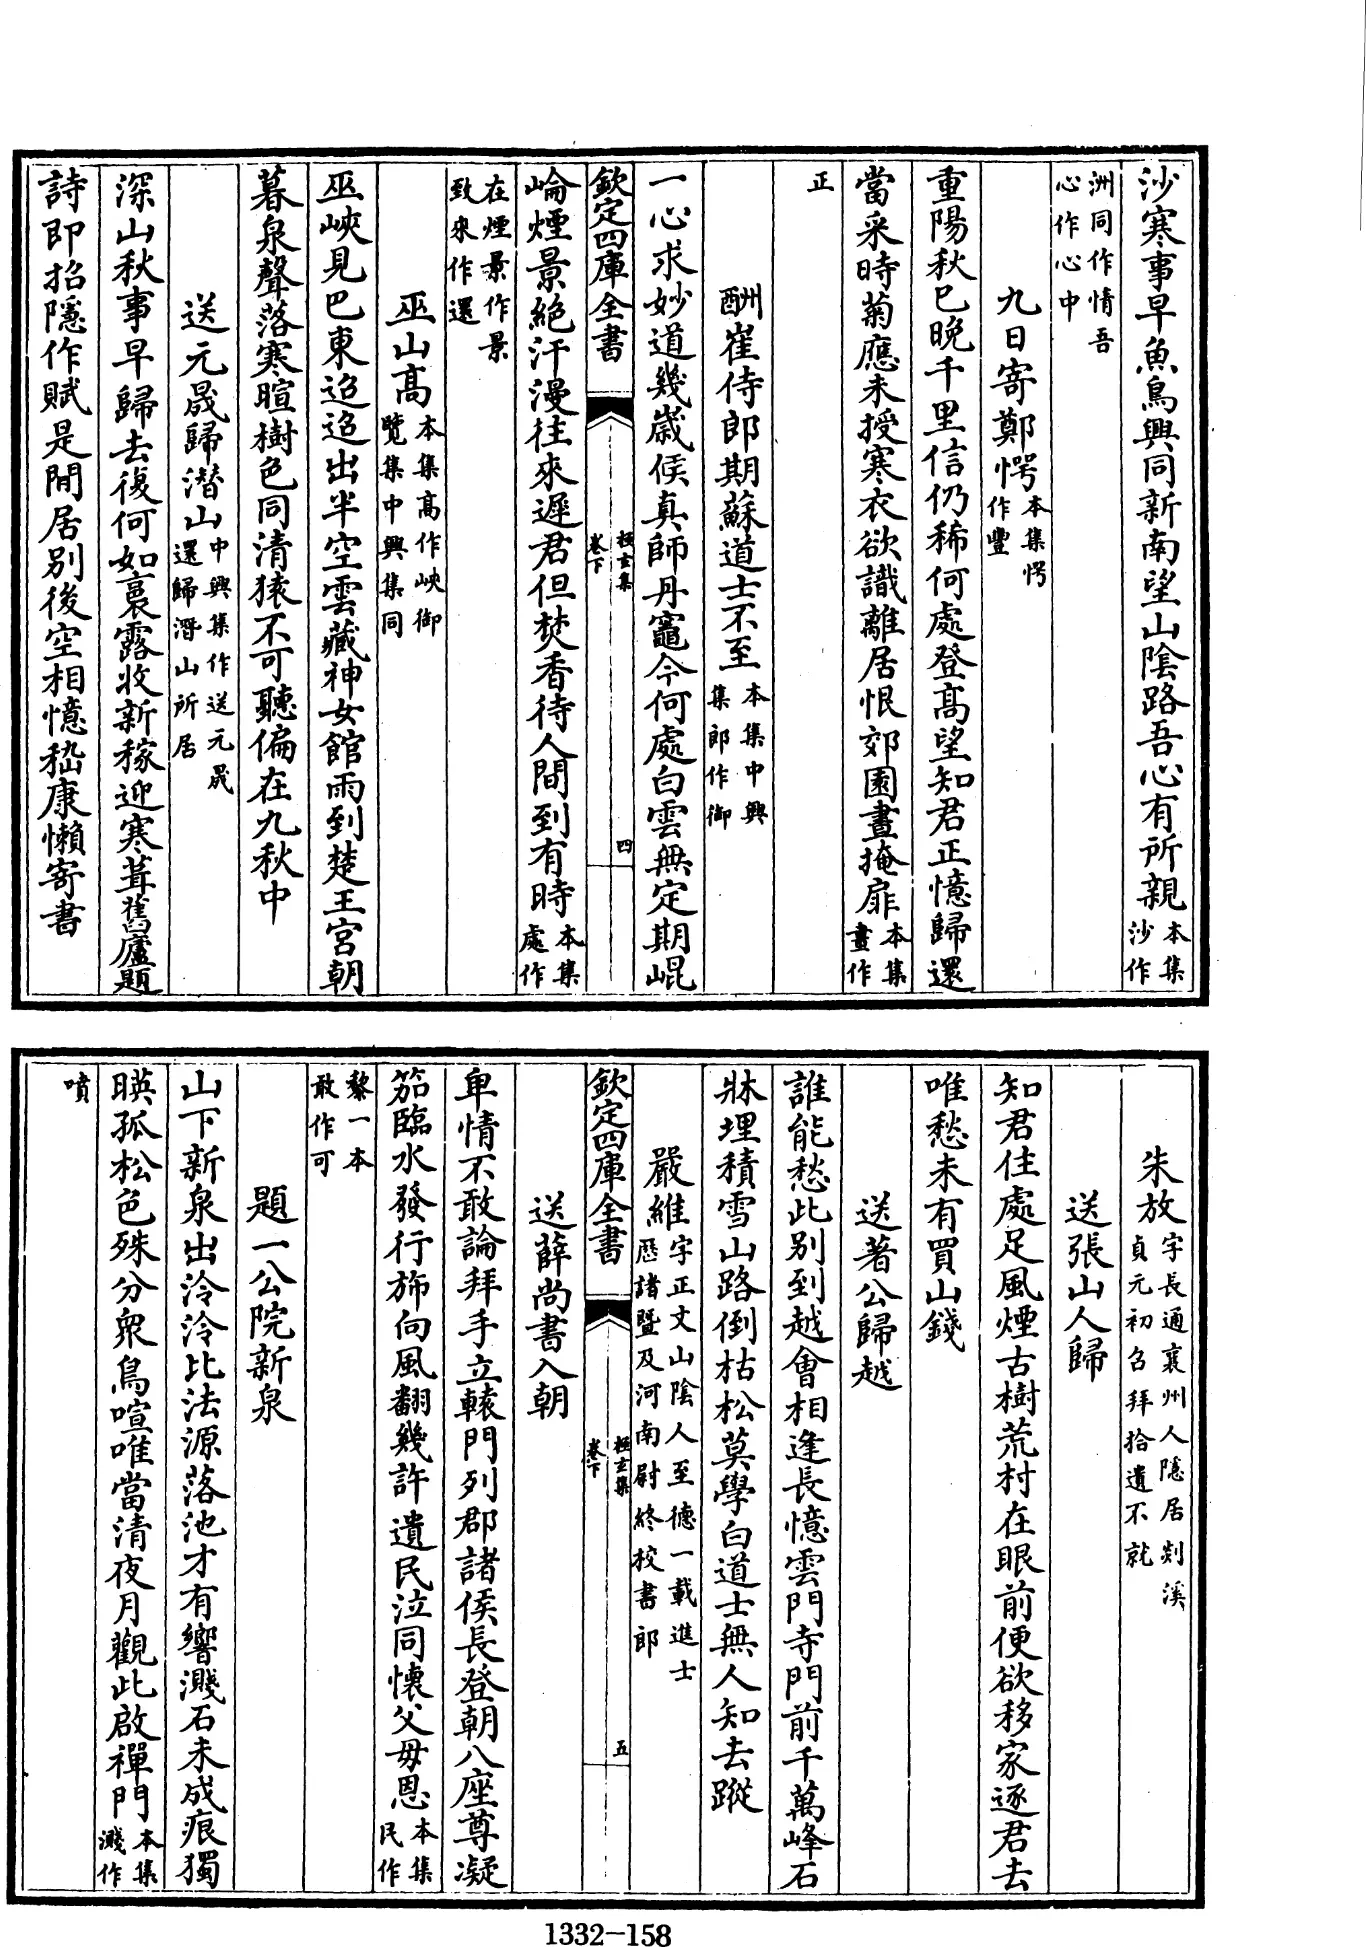 沙寒事早魚鳥興同新南望山陰路吾心有所親本集沙作
洲同作情吾心作心中
九日寄鄭愕本集愕作豐
重陽秋已晚千里信仍稀何處登高望知君正憶歸還
當采時菊應未授寒衣欲識離居恨郊園晝掩扉本集晝作
正
酬崔侍郎期蘇道士不至本集中興集郎作御
一心求妙道幾歲侯真師丹竈今何處白雲無定期崐
欽定四庫全書
極玄集
卷下
四
崘煙景絶汗漫往來遲君但焚香待人間到有時本集處作
在煙景作景致來作還
巫山高本集高作峽御覽集中興集同
巫峽見巴東迢迢出半空雲藏神女館雨到楚王宮朝
暮泉聲落寒暄樹色同清猿不可聽偏在九秋中
送元晟歸潜山中興集作送元晟還歸潛山所居
深山秋事早歸去復何如裛露收新稼迎寒葺舊廬題
詩即招隱作賦是閒居别後空相憶嵇康懶寄書
朱放字長通襄州人隱居剡溪貞元初召拜拾遺不就
送張山人歸
知君住處足風煙古樹荒村在眼前便欲移家逐君去
唯愁未有買山錢
送著公歸越
誰能愁此别到越會相逢長憶雲門寺門前千萬峰石
牀埋積雪山路倒枯松莫學白道士無人知去蹤
嚴維字正文山陰人至德一載進士歴諸暨及河南尉終校書郎
欽定四庫全書
極玄集
卷下
五
送薛尚書入朝
卑情不敢論拜手立轅門列郡諸侯長登朝八座尊凝
笳臨水發行斾向風翻幾許遺民泣同懷父母恩本集民作
黎一本敢作可
題一公院新泉
山下新泉出泠泠比法源落池才有響濺石未成痕獨
暎孤松色殊分衆鳥喧唯當清夜月觀此啟禪門本集濺作
噴
1332-158